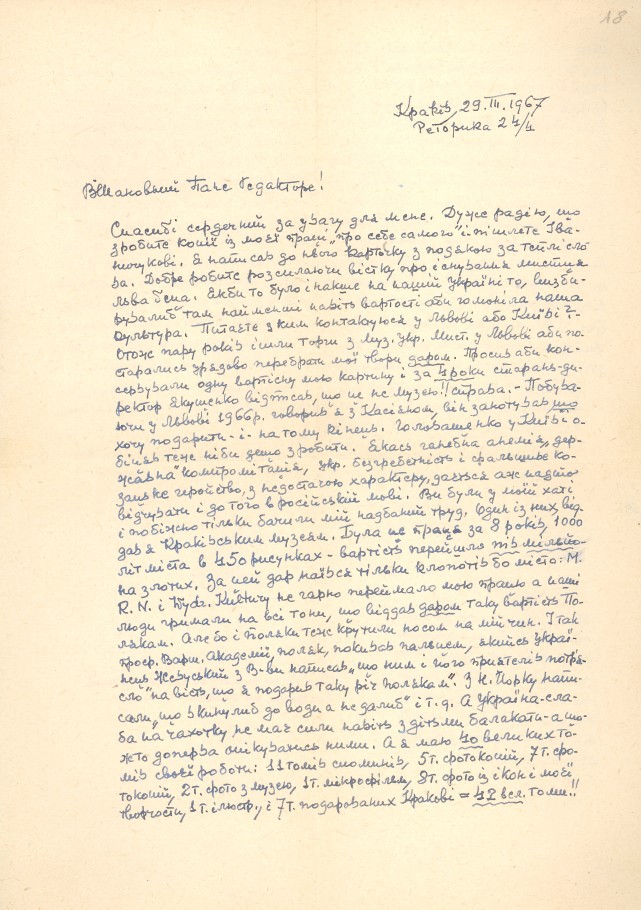 18
Краків, 29.III.1967
Реторика 24/4
ВШановний Пане Редакторе!
Спасибі сердечний за увагу для мене. Дуже радію, що
зробите копії із моєї праці „про себе самого" і пішлете Іва-
нючукові. Я написав до нього карточку з подякою за теплі сло-
ва. Добре робите розсилаючи вістку про існування мистця
Льва Ґеца. Якби то було інакше на нашій Україні то, визби-
рувалиб там найменші навіть вартості аби гомоніла наша
Культура. Питаєте з ким контактуюся у Львові або Київі?-
Отож пару років ішли торги з муз. укр. мист. у Львові аби по-
старались урядово перебрати мої твори даром. Просив аби кон-
сервували одну вартісну мою картину і за 4 роки старань ди-
ректор Якушенко відписав, що це не музею!! справа. - Побува-
ючи у Львові 1966р. говорив я з Касіяном, він занотував що
хочу подарити - і - на тому кінець. Головашенко у Київі о-
біцяв теж ніби дещо зробити. Якась ганебна анемія, дер-
жавна компромітація, укр. безгребетність і фальшиве ко-
зацьке геройство, з недостачою характеру, дається аж надто
відчувати і до того в російській мові. Ви були у моїй хаті
і побіжно тільки бачили мій надбаний труд. Один із них від-
дав я Краківським музеям. Була це праця за 8 років, 1000
літ міста в 450 рисунках - вартість перейшла пів мільйо-
на злотих. За цей дар наївся тільки клопотів бо місто: М.
R. N. і Wydz. Kultury не гарно перейняло мою працю а наші
люди гримали на всі тони, що віддав даром таку вартість По-
лякам. Але бо і поляки теж крутили носом на мій чин. І так
проф. Варш. Академії, поляк, покивав пальцем, якийсь украї-
нець Жевуський з В-ви написав „що ним і його приятелів потря-
сло" на вість, що я подарив таку річ полякам". З Н. Йорку напи-
сали, „що вкинулиб до води а не далиб" і т. д. А Україна-сла-
ба на чахотку не має сили навіть з дітьми балакати-а що-
жто доперва опікуватись ними. А я маю 40 великих то-
мів своєї роботи: 11 томів споминів, 5т. фотокопій, 7т. фо-
токопій, 2т. фото з музею, 1т. мікрофілем, 8т. фото із ікон і моєї
творчости, 1т. ілюстр., і 7т. подарованих Кракові = 42 вел. томи!!